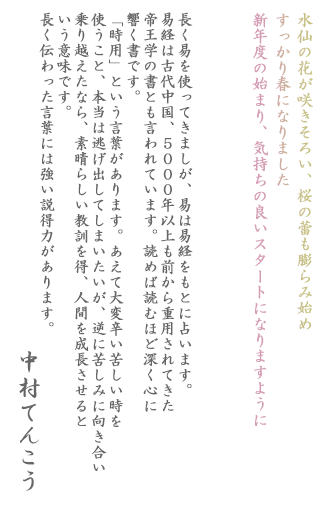 水仙の花が咲きそろい、桜の蕾も膨らみ始め
すっかり春になりました
新年度の始まり、気持ちの良いスタートになりますように
長く易を使ってきましが、易は易経をもとに占います。
易経は古代中国、5000年以上も前から重用されてきた
帝王学の書とも言われています。読めば読むほど深く心に
響く書です。
「時用」という言葉があります。あえて大変辛い苦しい時を
使うこと、本当は逃げ出してしまいたいが、逆に苦しみに向き合い
乗り越えたなら、素晴らしい教訓を得、人間を成長させると
いう意味です。
長く伝わった言葉には強い説得力があります。
中村てんこう